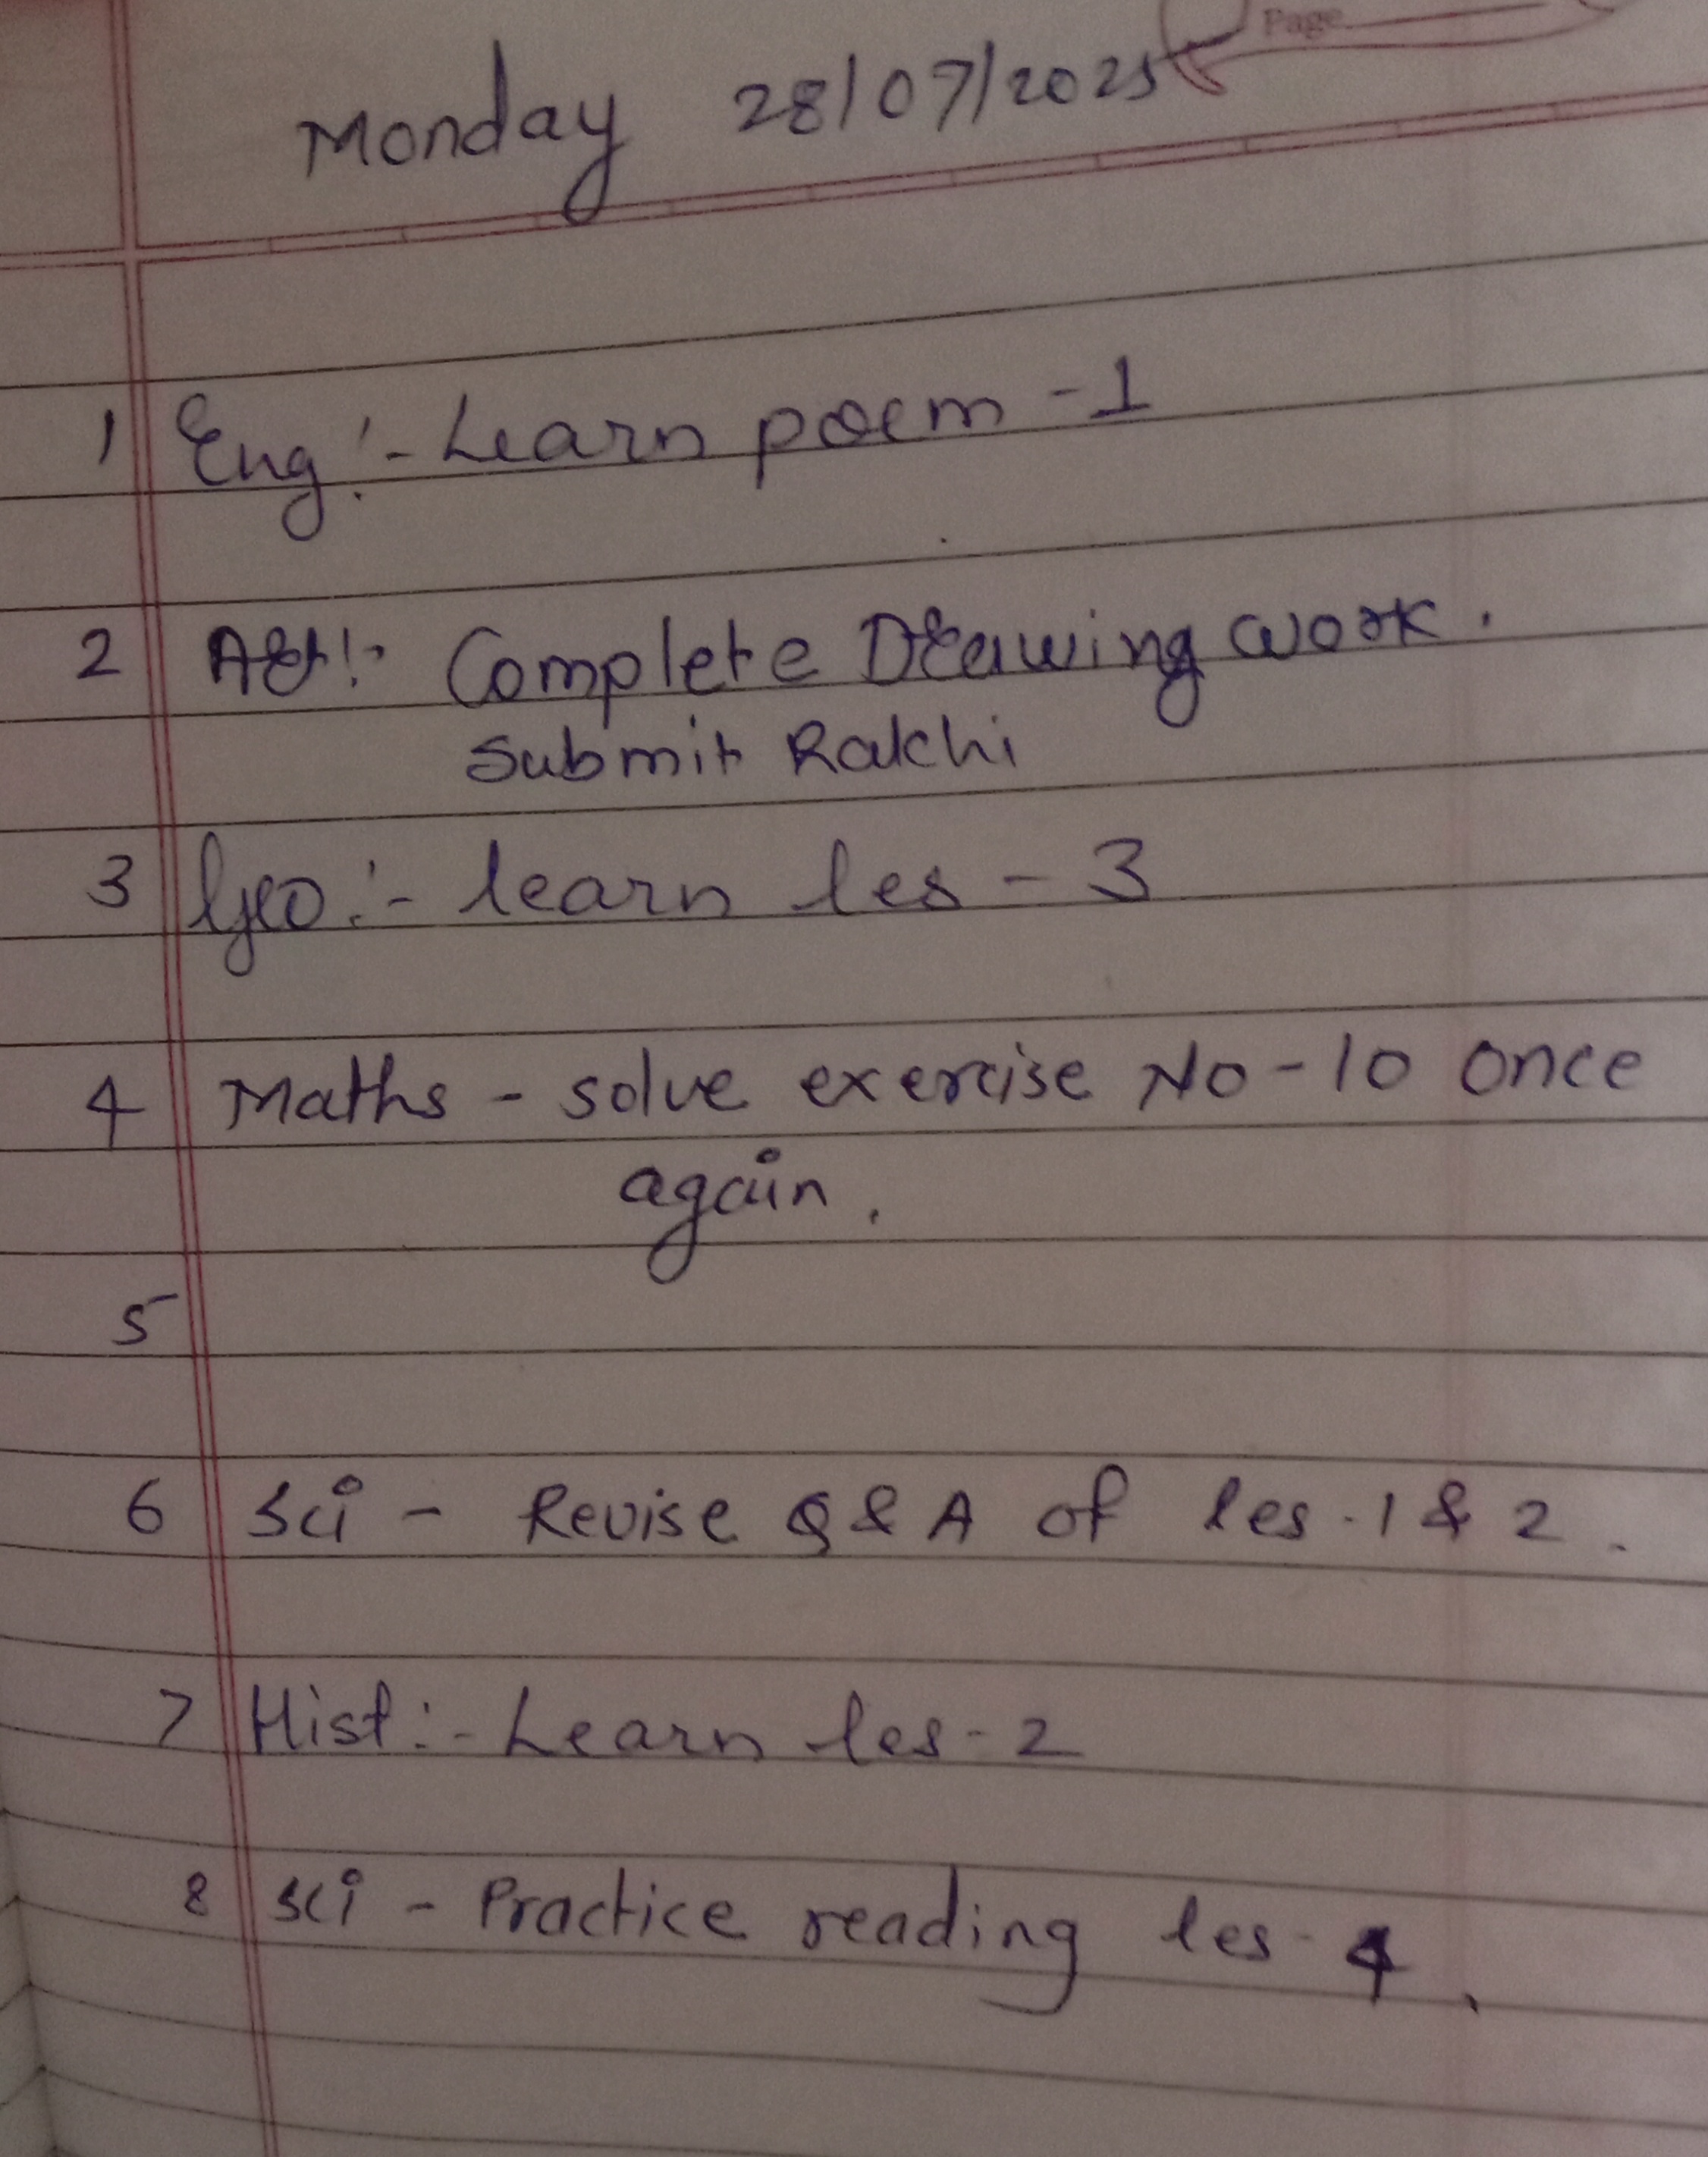 Page
Monday 28/07/2025
1 Eng :- Learn poem - 1
2 Art :- Complete Drawing work.
Submit Rakhi
3 Geo :- learn les - 3
4 Maths - solve exercise No - 10 once
again.
5
6 Sci - Revise Q & A of les - 1 & 2.
7 Hist :- Learn les - 2
8 sci - Practice reading les - 4.